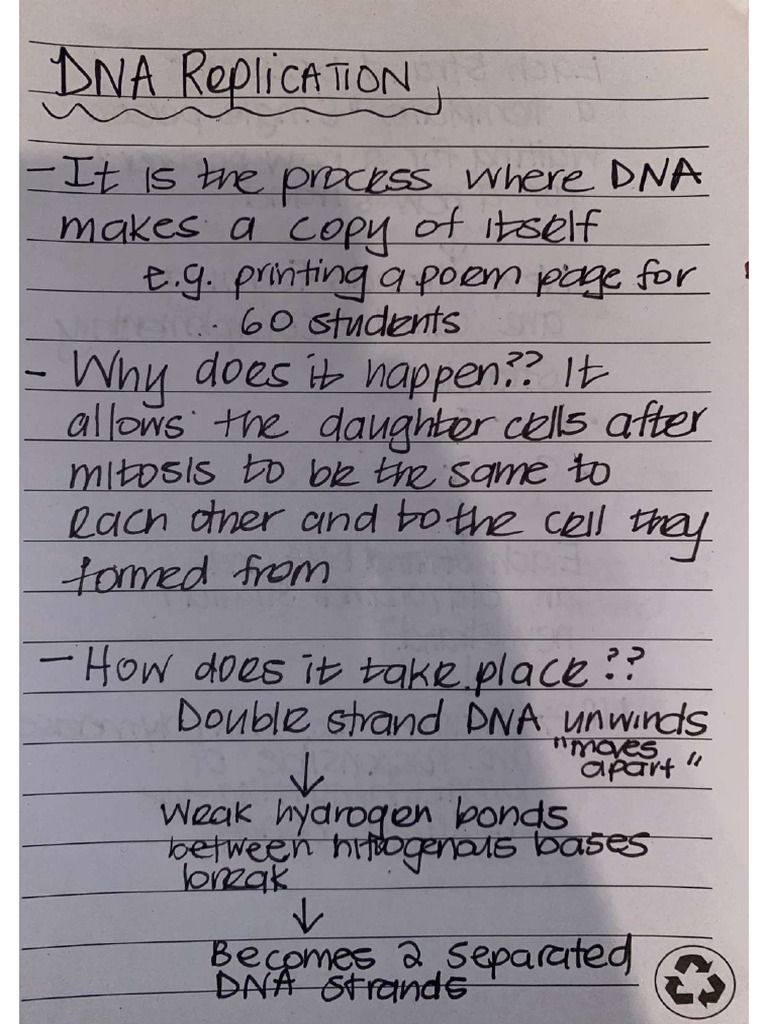 DNA Replication
- It is the process where DNA
makes a copy of itself
e.g. printing a poem page for
60 students
- Why does it happen?? It
allows the daughter cells after
mitosis to be the same to
each other and to the cell they
formed from
- How does it take place??
Double strand DNA unwinds
"moves
apart"
↓
Weak hydrogen bonds
between nitrogenous bases
break
↓
Becomes 2 separated
DNA strands